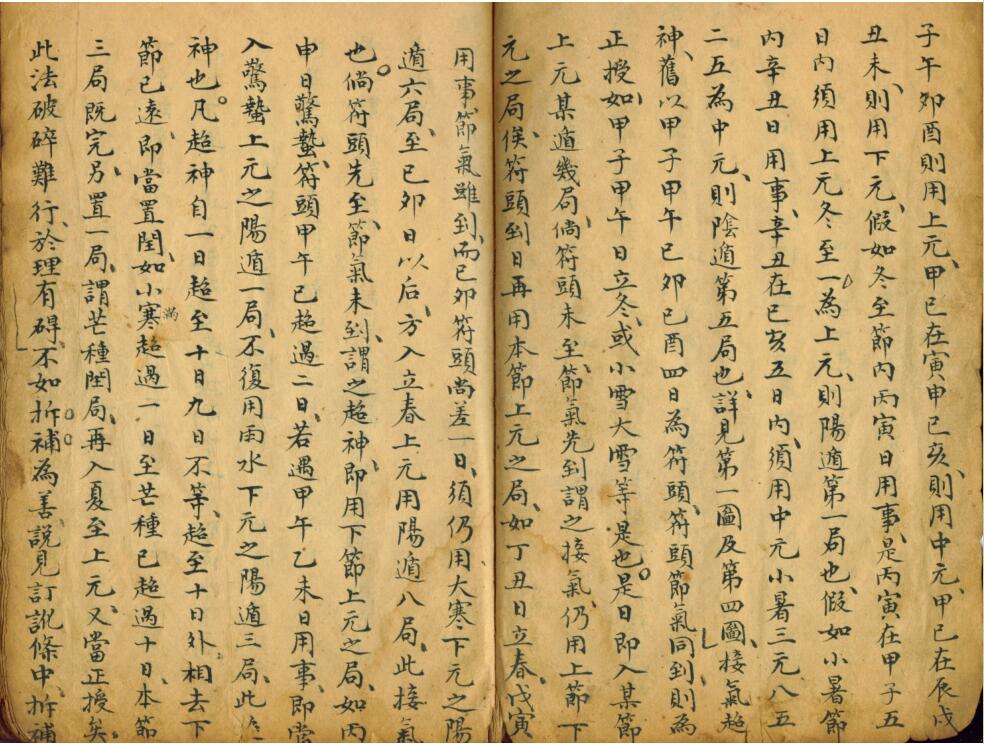 子午卯酉則用上元、甲己在寅申巳亥、則用中元、甲己在辰戌
丑未、則用下元、假如冬至節內丙寅日用事、是丙寅在甲子五
日內須用上元冬至一為上元、則陽遁第一局也、假如小暑節
內辛丑日用事、辛丑在己亥五日內、須用中元小暑三元八五
二五為中元、則陰遁第五局也、詳見第一圖及第四圖、接氣超
神、舊以甲子甲午己卯己酉四日為符頭、符頭節氣同到、則為
正授、如甲子甲午日立冬、或小雪大雪等是也。是日即入某節
上元某遁幾局、倘符頭未至、節氣先到謂之接氣、仍用上節下
元之局、俟符頭到日再用本節上元之局、如丁丑日立春、戊寅
用事、節氣雖到、而己卯符頭尚差一日、須仍用大寒下元之陽
遁六局、至己卯日以后、方入立春上元用陽遁八局、此接氣
也。倘符頭先至、節氣未到、謂之超神、即用下節上元之局、如丙
申日驚蟄、符頭甲午已超過二日、若遇甲午乙未日用事、即當
入驚蟄上元之陽遁一局、不復用雨水下元之陽遁三局、此
神也。凡超神自一日超至十日九日不等、超至十日外相去下
節已遠、即當置閏、如小寒滿超過一日至芒種已超過十日、本節
三局既完、另置一局、謂芒種閏局、再入夏至上元、又當正授矣。
此法破碎難行、於理有碍、不如拆補為善、說見訂訛條中、拆補